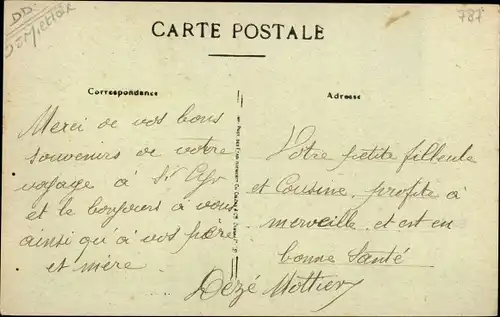 787
CARTE POSTALE
Correspondance
Adresse
Merci de vos bons
souvenirs de votre
voyage à St Cyr
et le bonjours à vous
ainsi qu'à vos père
et mère.
Votre petite filleule
et Cousine, profite à
merveille et est en
bonne Santé
Dezé Mottier